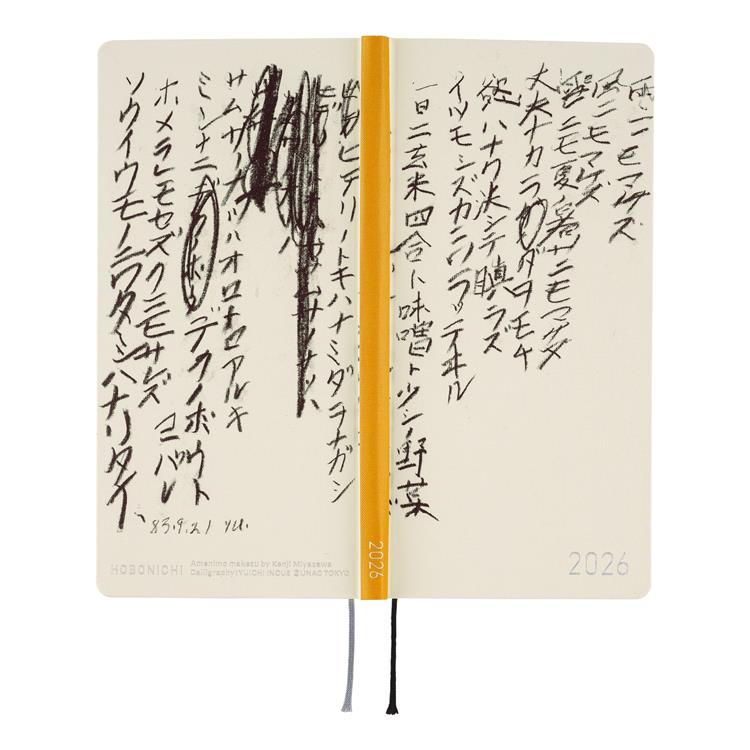 雨ニモマケズ
風ニモマケズ
雪ニモ夏ノ暑サニモマケヌ
丈夫ナカラダヲモチ
慾ハナク決シテ瞋ラズ
イツモシズカニワラッテヰル
一日ニ玄米四合ト味噌ト少シノ野菜
2026
2026
ヒデリノトキハナミダヲナガシ
サムサノナツハオロオロアルキ
ミンナニデクノボウト
ヨバレ
ホメラレモセズクニモサレズ
ソウイウモノニワタシハナリタイ
83.9.21 YU.
HOBONICHI
Amenimo makezu by Kenji Miyazawa
Calligraphy:YUICHI INOUE ©UNAC TOKYO